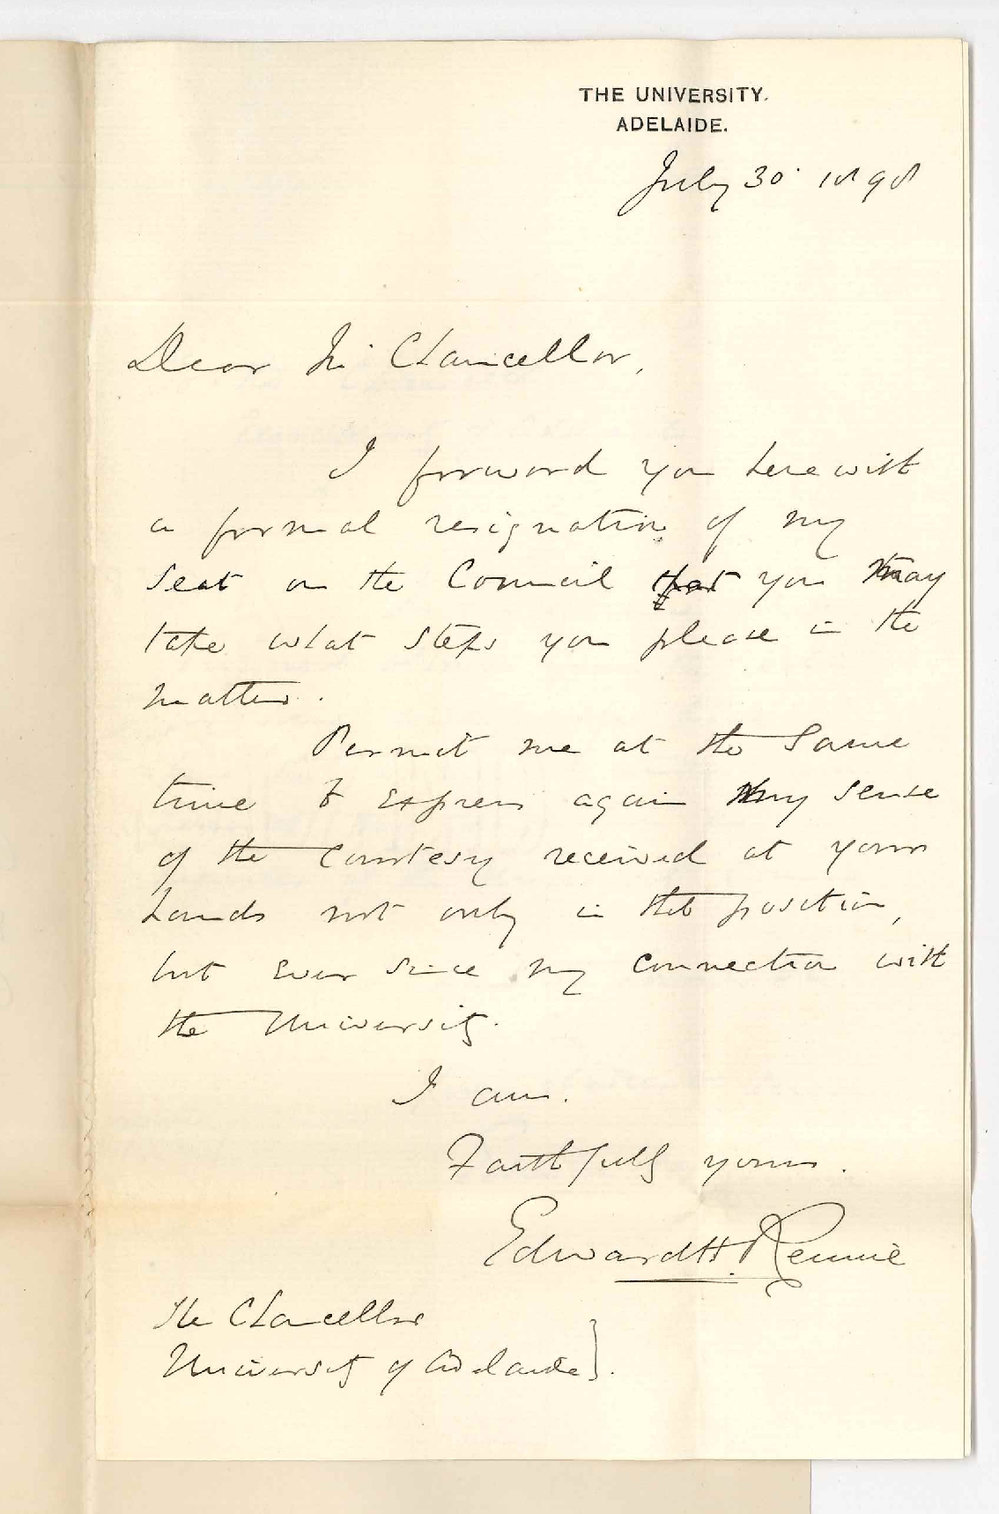 THE UNIVERSITY.
ADELAIDE.
July 30. 1898
Dear Mr Chancellor,
I forward you herewith
a formal resignation of my
seat on the Council that you may
take what steps you please in the
matter.
Permit me at the same
time to express again my sense
of the courtesy received at your
hands not only in this position,
but ever since my connection with
the University.
I am.
Faithfully yours.
Edward H. Rennie
The Chancellor
University of Adelaide}.